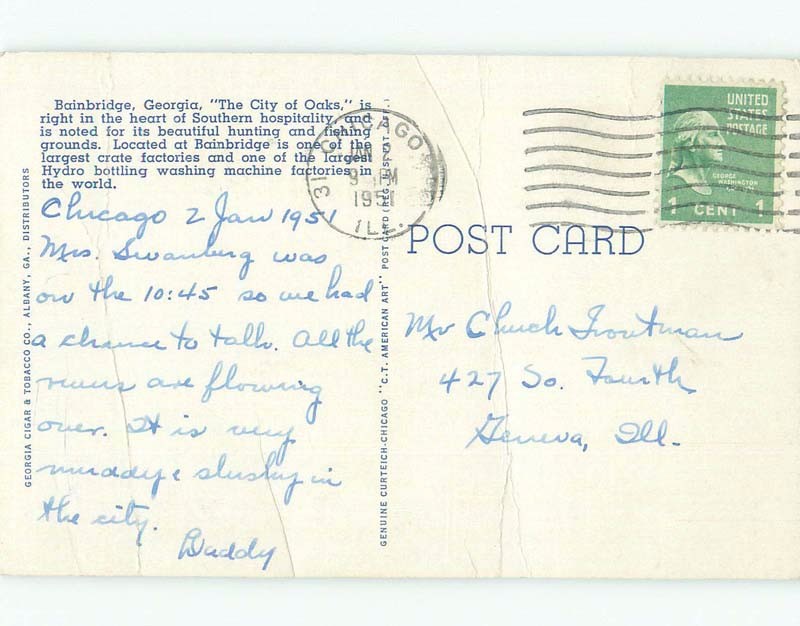 Bainbridge, Georgia, "The City of Oaks," is
right in the heart of Southern hospitality, and
is noted for its beautiful hunting and fishing
grounds. Located at Bainbridge is one of the
largest crate factories and one of the largest
Hydro bottling washing machine factories in
the world.
Chicago 2 Jan 1951
Mrs. Swanberg was
on the 10:45 so we had
a chance to talk. All the
rivers are flowing
over. It is very
muddy & slushy in
the city.
Daddy
GEORGIA CIGAR & TOBACCO CO., ALBANY, GA., DISTRIBUTORS
GENUINE CURTEICH-CHICAGO "C.T. AMERICAN ART" POST CARD (REG. U.S. PAT. OFF.)
CHICAGO
31
JAN
9 PM
1951
ILL.
UNITED
STATES
POSTAGE
GEORGE
WASHINGTON
1 CENT 1
POST CARD
Mr Chuck Troutman
427 So. Fourth
Geneva, Ill.